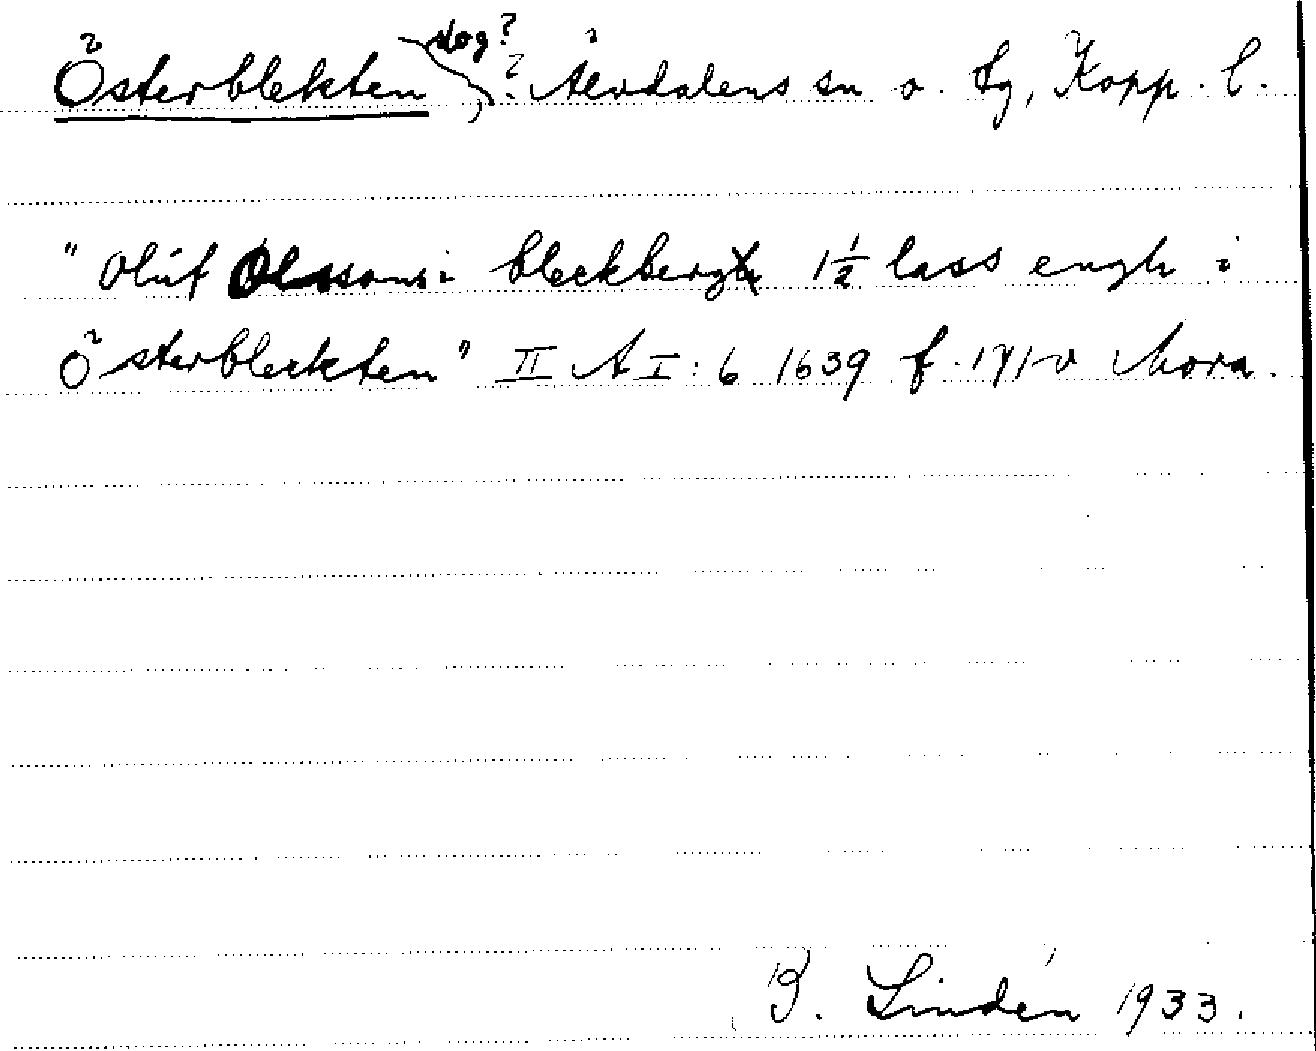 Österblekten, slog? ? Älvdalens sn o. tg, Kopp. l.
"Oluf Olssons i bleckberg 1½ lass engh i
Österbleckten" II A I: 6 1639 f. 171 v Mora.
B. Lindén 1933.